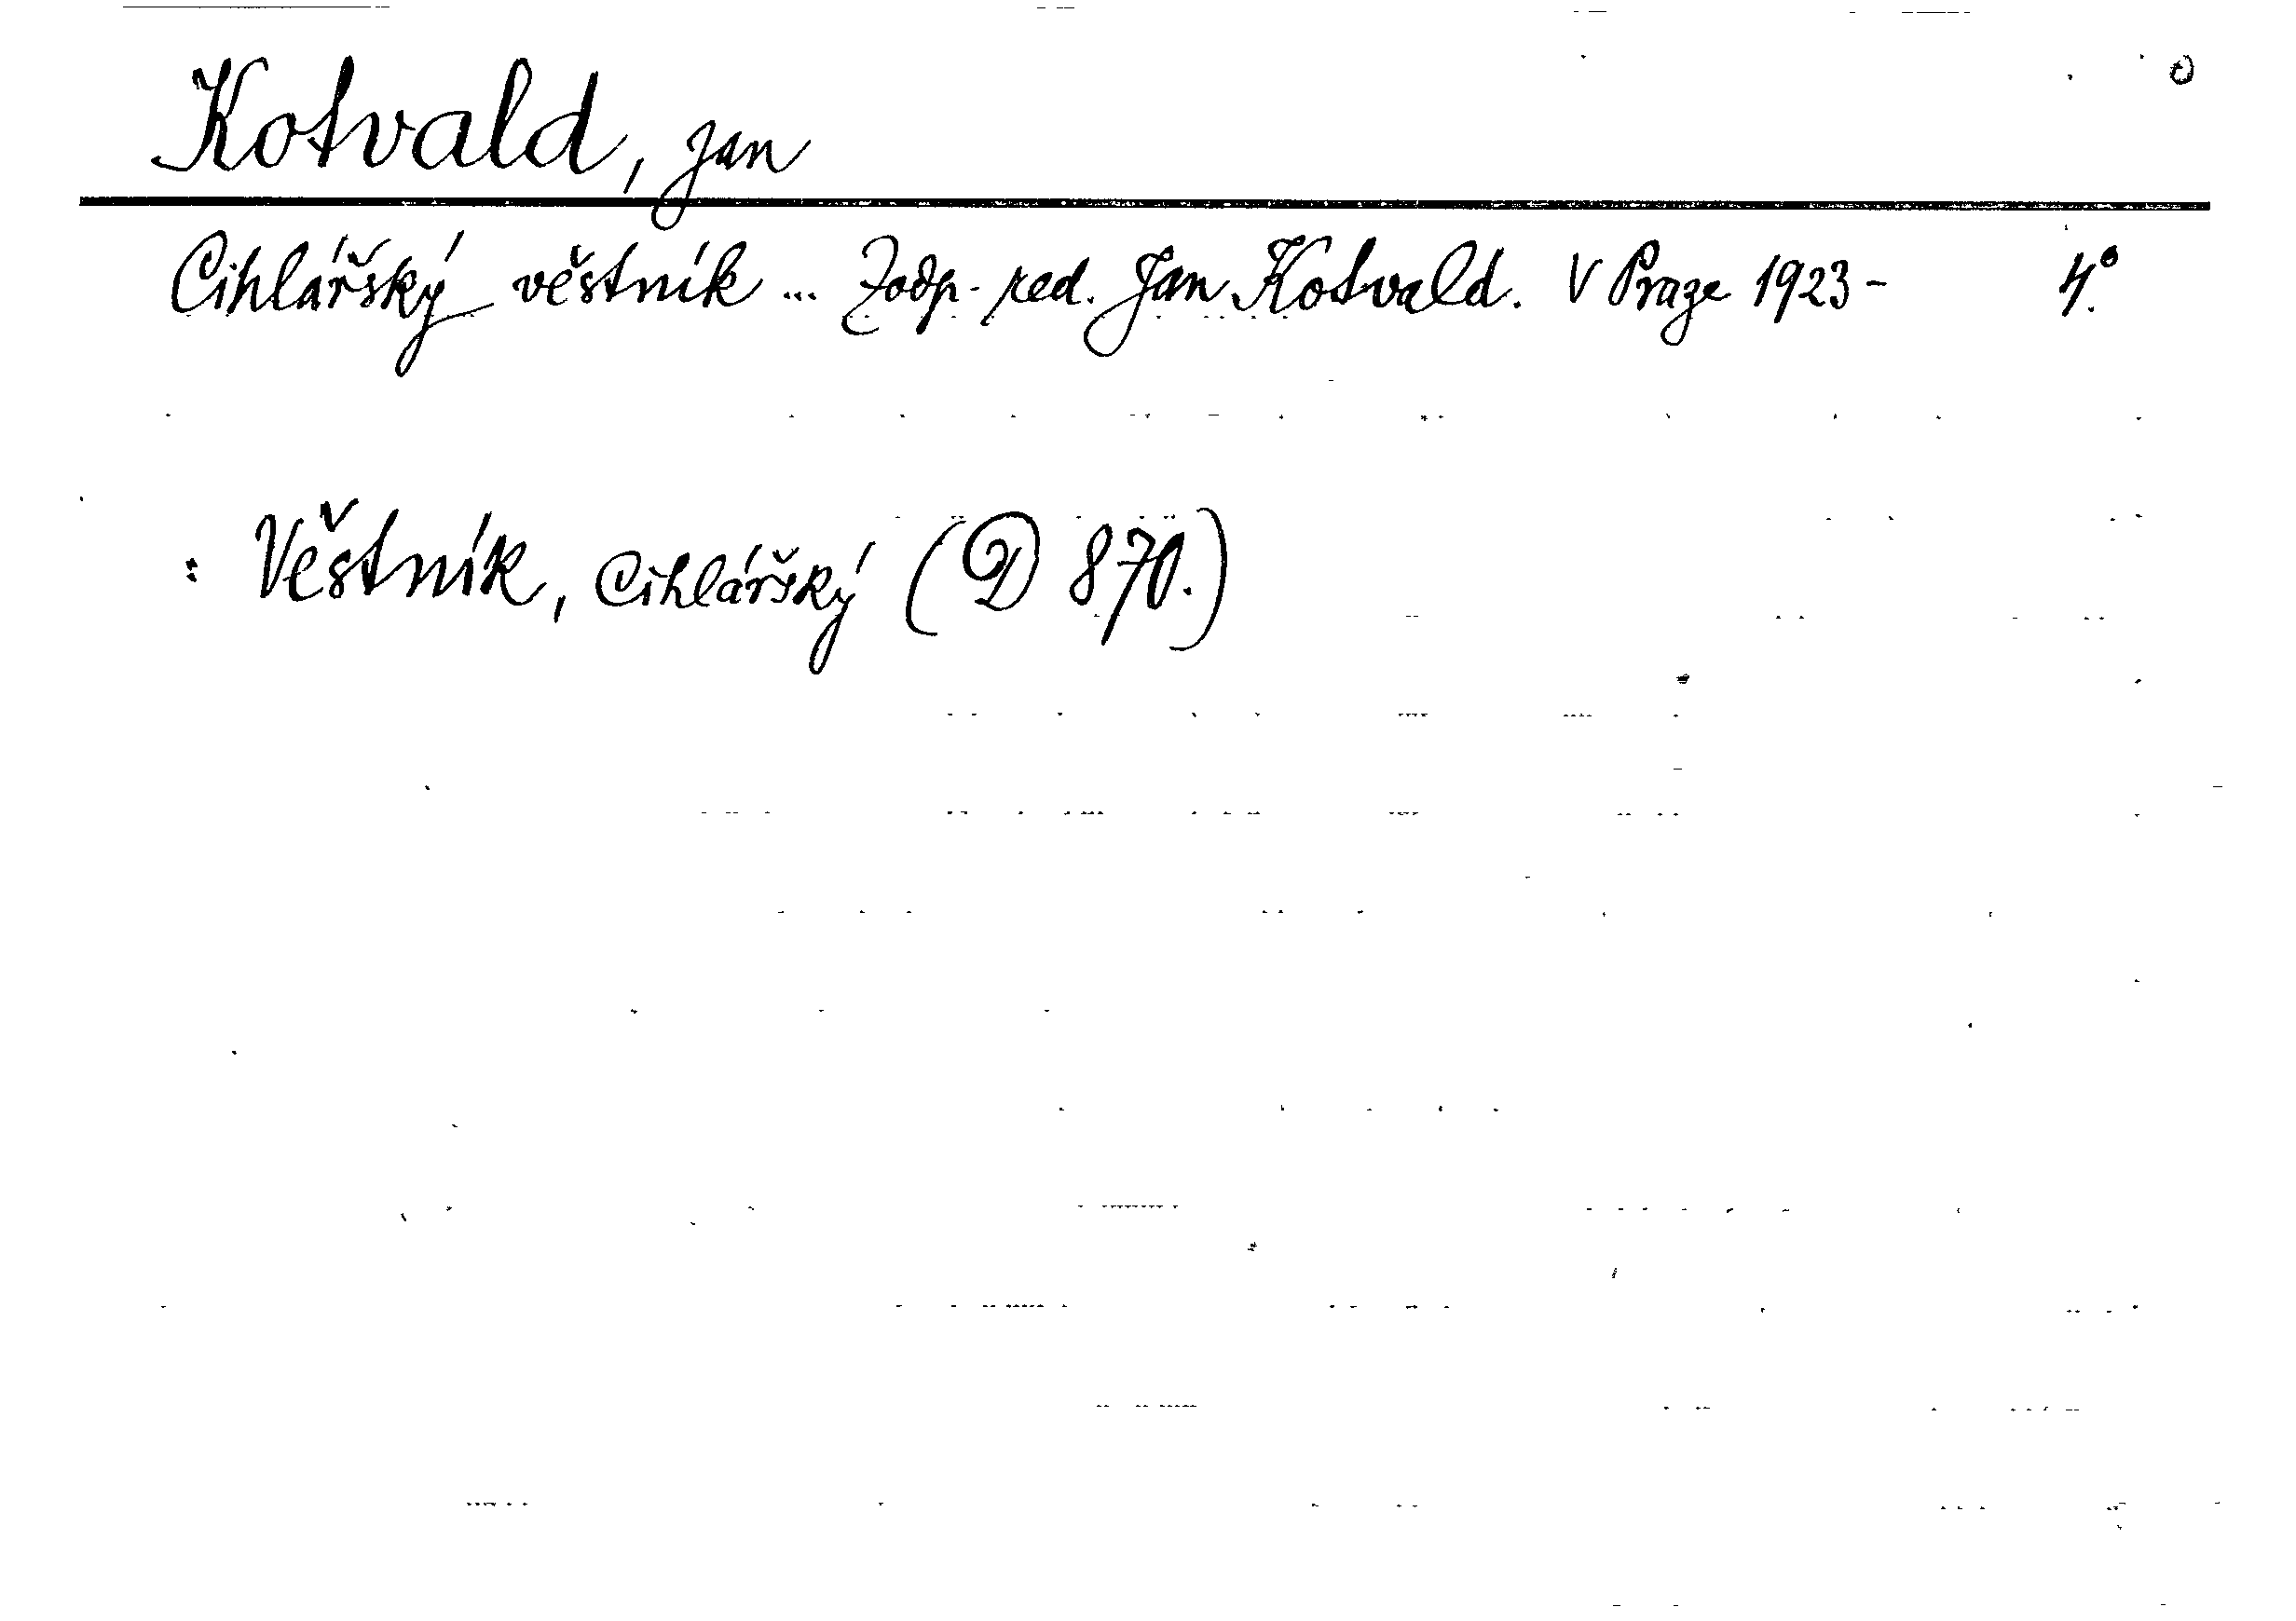 Kotvald, Jan
Cihlářský věstník ... Zodp. red. Jan Kotvald. V Praze 1923- 4.°
: Věstník, Cihlářský (D 870.)